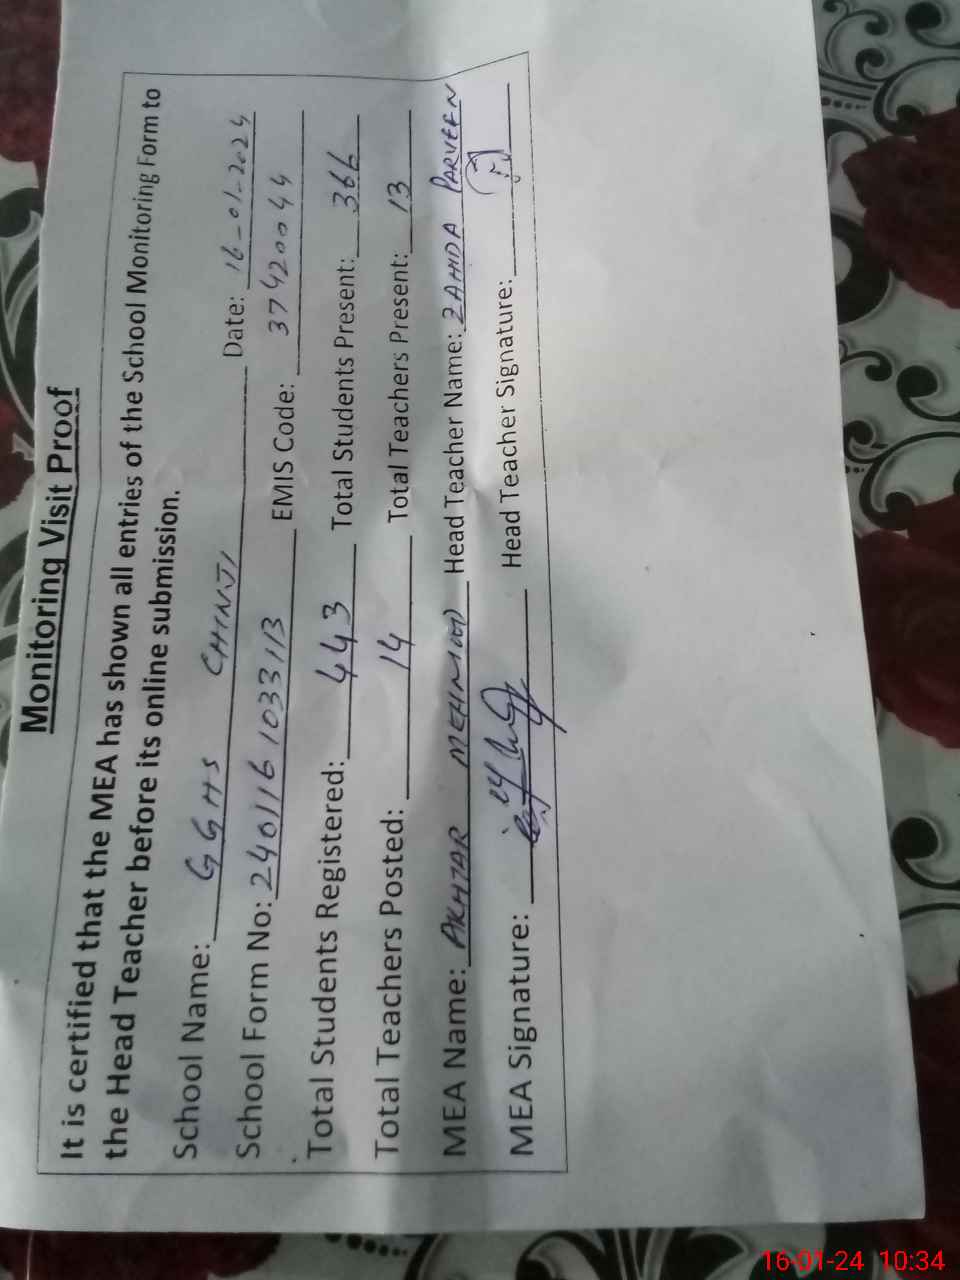 Monitoring Visit Proof
It is certified that the MEA has shown all entries of the School Monitoring Form to
the Head Teacher before its online submission.
School Name: GGHS CHINJI Date: 16-01-2024
School Form No: 240116 1033113 EMIS Code: 37420044
Total Students Registered: 443 Total Students Present: 366
Total Teachers Posted: 14 Total Teachers Present: 13
MEA Name: AKHTAR MEHMOOD Head Teacher Name: ZAHIDA PARVEEN
MEA Signature: Head Teacher Signature:
16-01-24 10:34